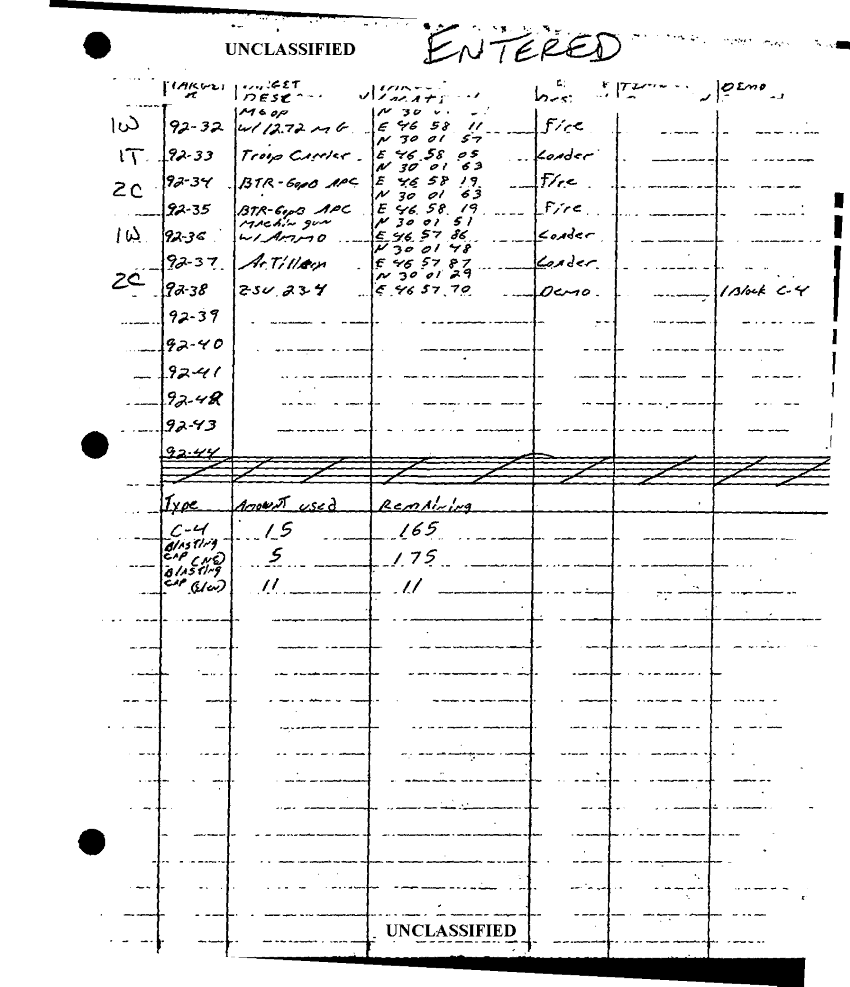 UNCLASSIFIED ENTERED
TARGET TARGET DEMO
#
N 30
1W 92-32 W/ 12.72 MG E 46 58 11 Fire
N 30 01 57
1T 92-33 Troop Carrier E 46 58 05 Loader
N 30 01 63
2C 92-34 BTR-60PB APC E 46 58 19 Fire
N 30 01 63
92-35 BTR-60PB APC E 46 58 19 Fire
Machin gun N 30 01 51
1W 92-36 W/ AMMO E 46 57 86 Loader
N 30 01 48
92-37 Artillery E 46 57 87 Loader
N 30 01 29
2C 92-38 ZSU 23-4 E 46 57 70 Demo 1 Block C-4
92-39
92-40
92-41
92-42
92-43
92-44
Type Amount used Remaining
C-4 15 165
Blasting
CAP 5 175
Blasting
CAP 11 11
UNCLASSIFIED